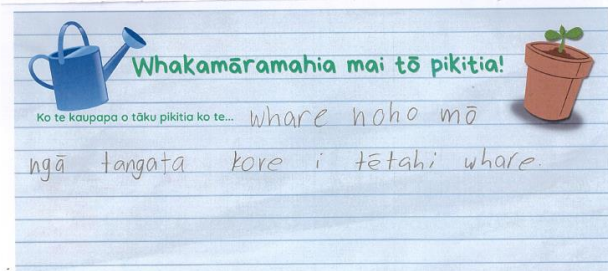 Whakamāramahia mai tō pikitia!
Ko te kaupapa o tāku pikitia ko te... whare noho mō
ngā tangata kore i tētahi whare.